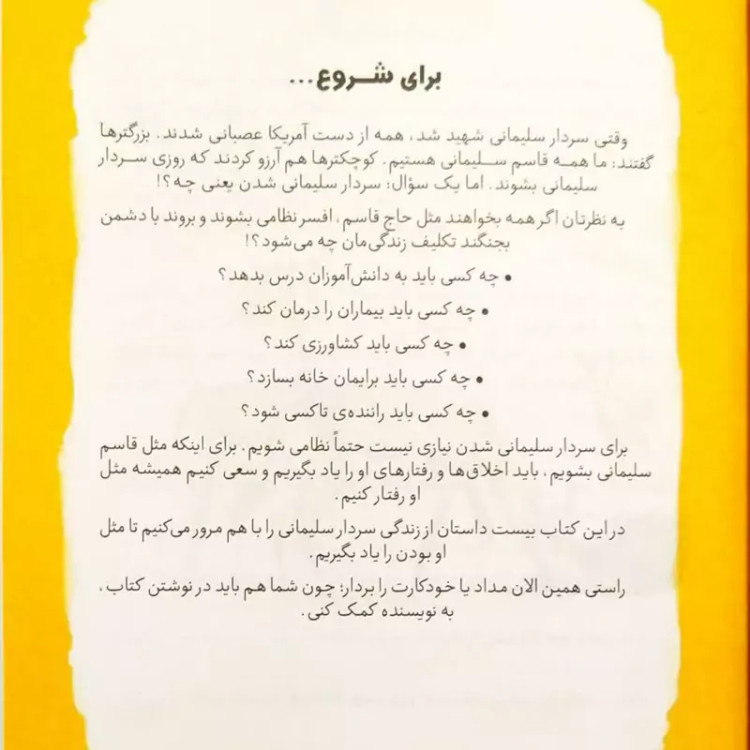 برای شـــروع...
وقتی سردار سلیمانی شهید شد، همه از دست آمریکا عصبانی شدند. بزرگترها
گفتند: ما همه قاسم سـلیمانی هستیم. کوچکترها هم آرزو کردند که روزی سـردار
سلیمانی بشوند. اما یک سؤال: سردار سلیمانی شدن یعنی چه؟!
به نظرتان اگر همه بخواهند مثل حاج قاسم، افسر نظامی بشوند و بروند با دشمن
بجنگند تکلیف زندگی‌مان چه می‌شود؟!
• چه کسی باید به دانش‌آموزان درس بدهد؟
• چه کسی باید بیماران را درمان کند؟
• چه کسی باید کشاورزی کند؟
• چه کسی باید برایمان خانه بسازد؟
• چه کسی باید راننده‌ی تاکسی شود؟
برای سردار سلیمانی شدن نیازی نیست حتماً نظامی شویم. برای اینکه مثل قاسم
سلیمانی بشویم، باید اخلاق‌ها و رفتارهای او را یاد بگیریم و سعی کنیم همیشه مثل
او رفتار کنیم.
در این کتاب بیست داستان از زندگی سردار سلیمانی را با هم مرور می‌کنیم تا مثل
او بودن را یاد بگیریم.
راستی همین الان مداد یا خودکارت را بردار؛ چون شما هم باید در نوشتن کتاب،
به نویسنده کمک کنی.